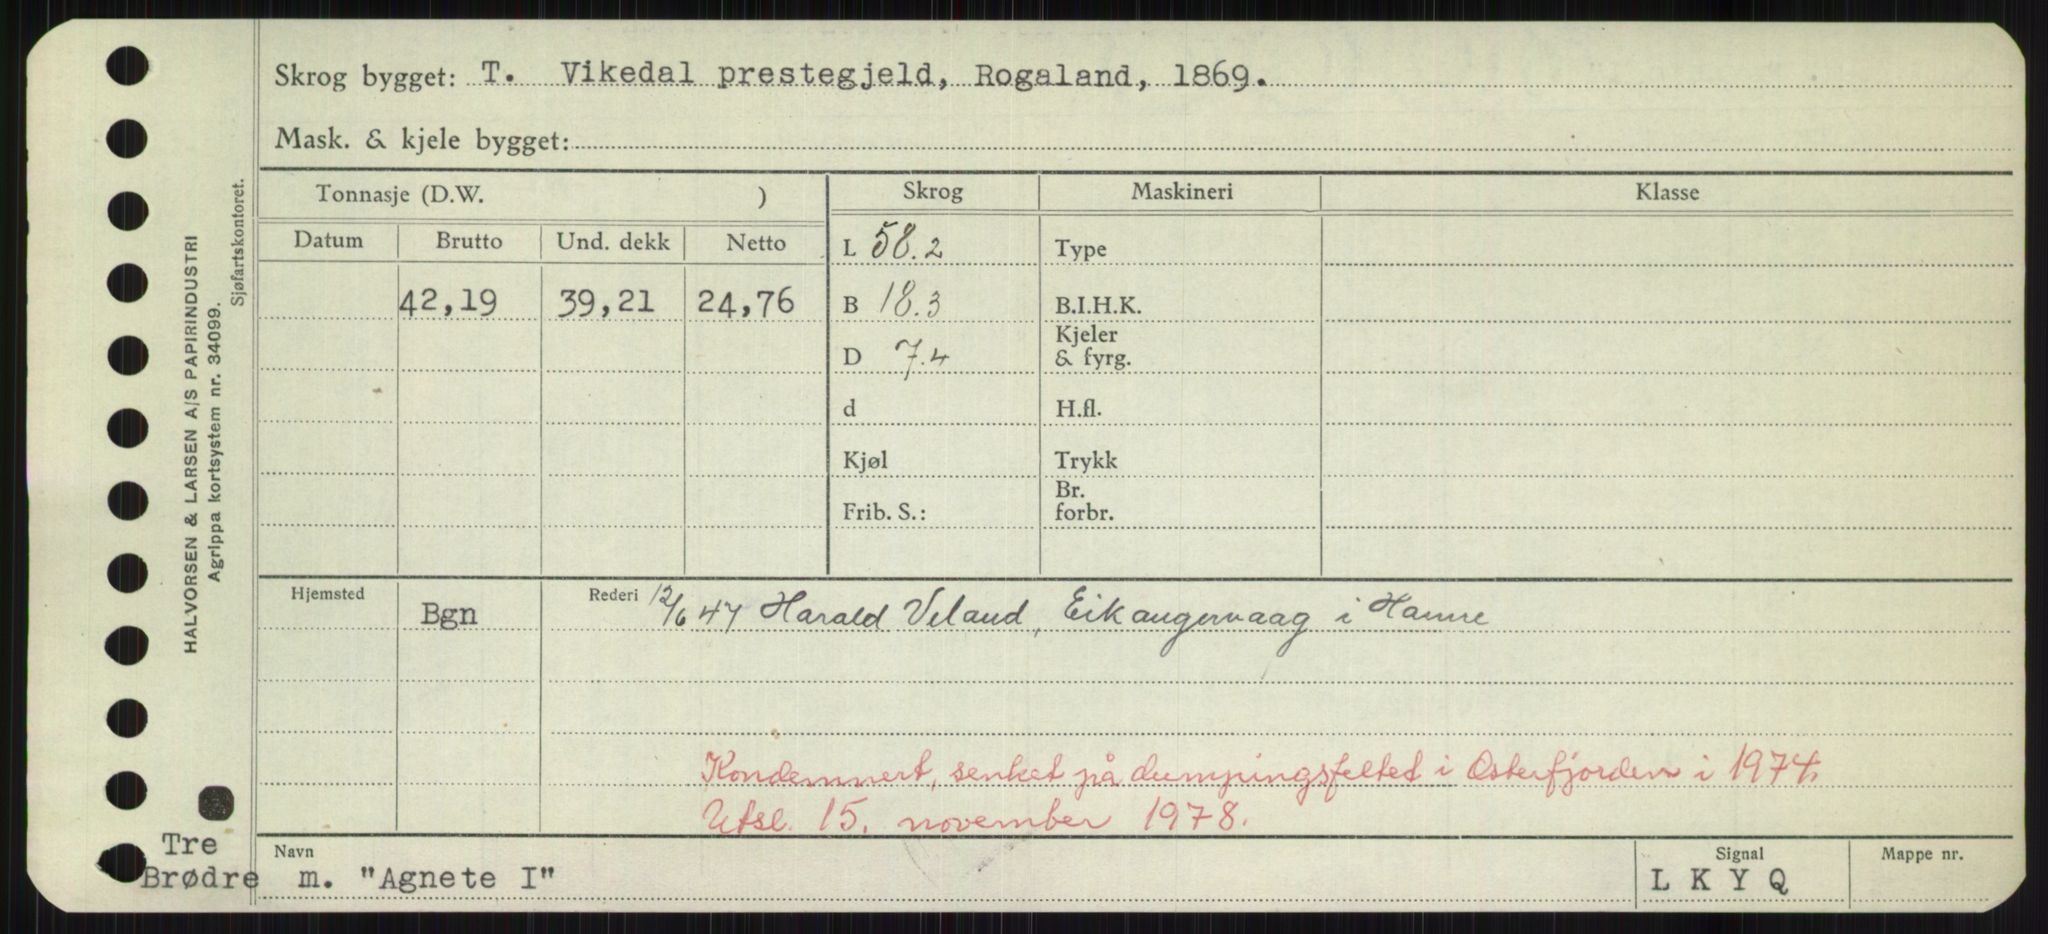 Skrog bygget: T. Vikedal prestegjeld, Rogaland, 1869.
Mask. & kjele bygget:
HALVORSEN & LARSEN A/S PAPIRINDUSTRI
Agrippa kortsystem nr. 34099.
Sjøfartskontoret.
Tonnasje (D.W. )
Skrog
Maskineri
Klasse
Datum Brutto Und. dekk Netto
42,19 39,21 24,76
L 58.2
B 18.3
D 7.4
d
Kjøl
Frib. S.:
Type
B.I.H.K.
Kjeler
& fyrg.
H.fl.
Trykk
Br.
forbr.
Hjemsted
Bgn
Rederi 12/6 47 Harald Veland, Eikangervaag i Hamre
Kondemnert, senket på dumpingsfeltet i Osterfjorden i 1974.
Utsl. 15. november 1978.
Tre
Brødre
Navn
m. "Agnete I"
Signal
L K Y Q
Mappe nr.